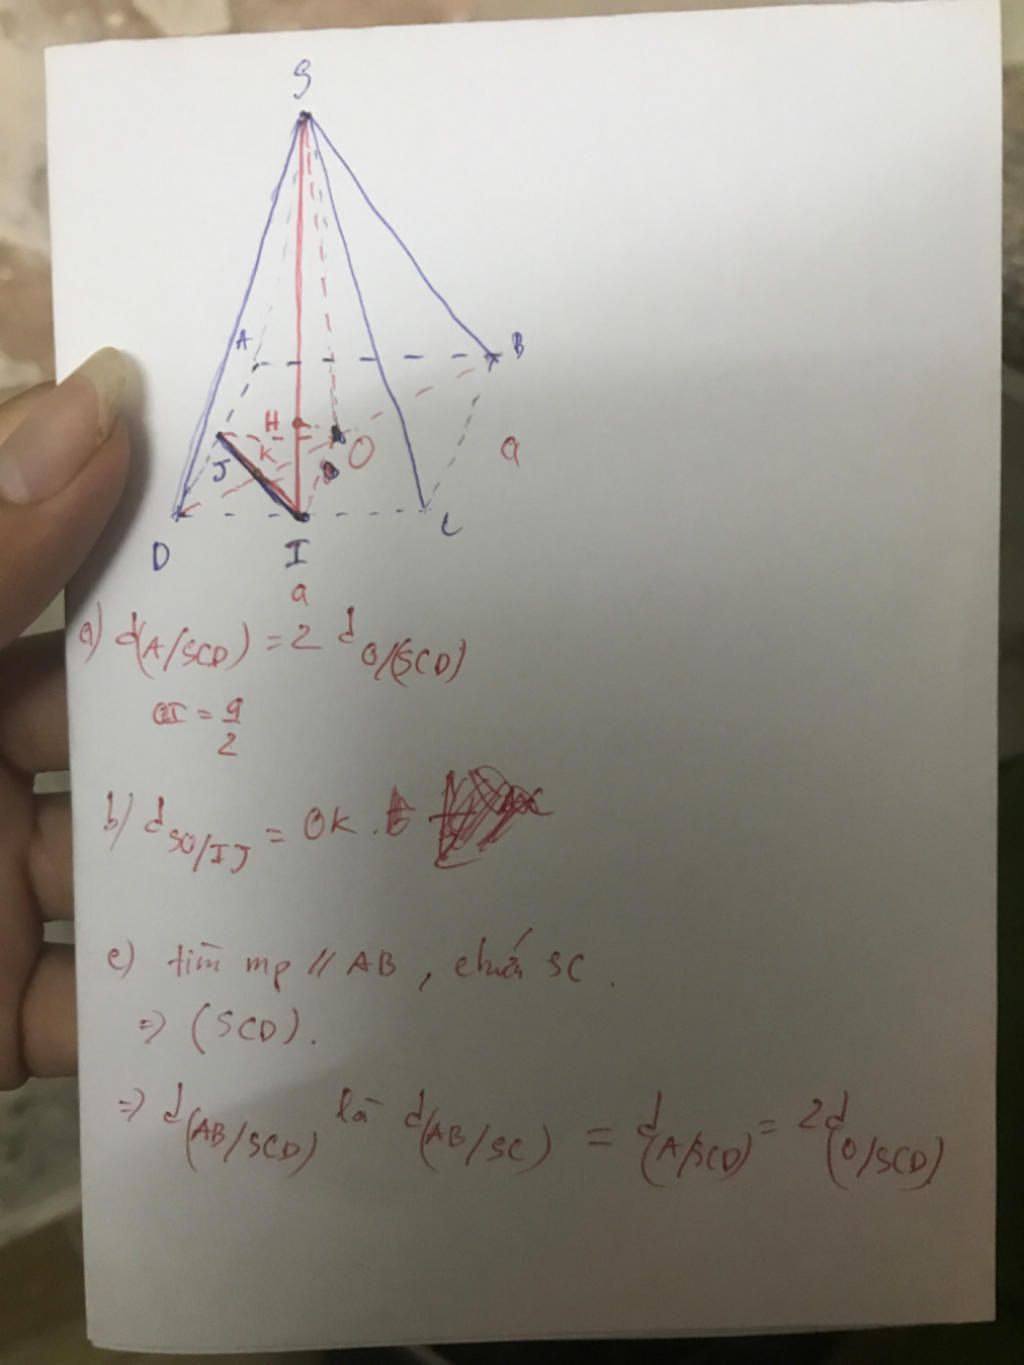 S
A
B
H
K
O
a
J
D
I
C
a
a) d(A/SCD) = 2 d O/(SCD)
OI = a/2
b) d SO/IJ = OK.
c) tìm mp // AB, chứa SC.
=> (SCD).
=> d(AB/SCD) là d(AB/SC) = d(A/SCD) = 2d(O/SCD)